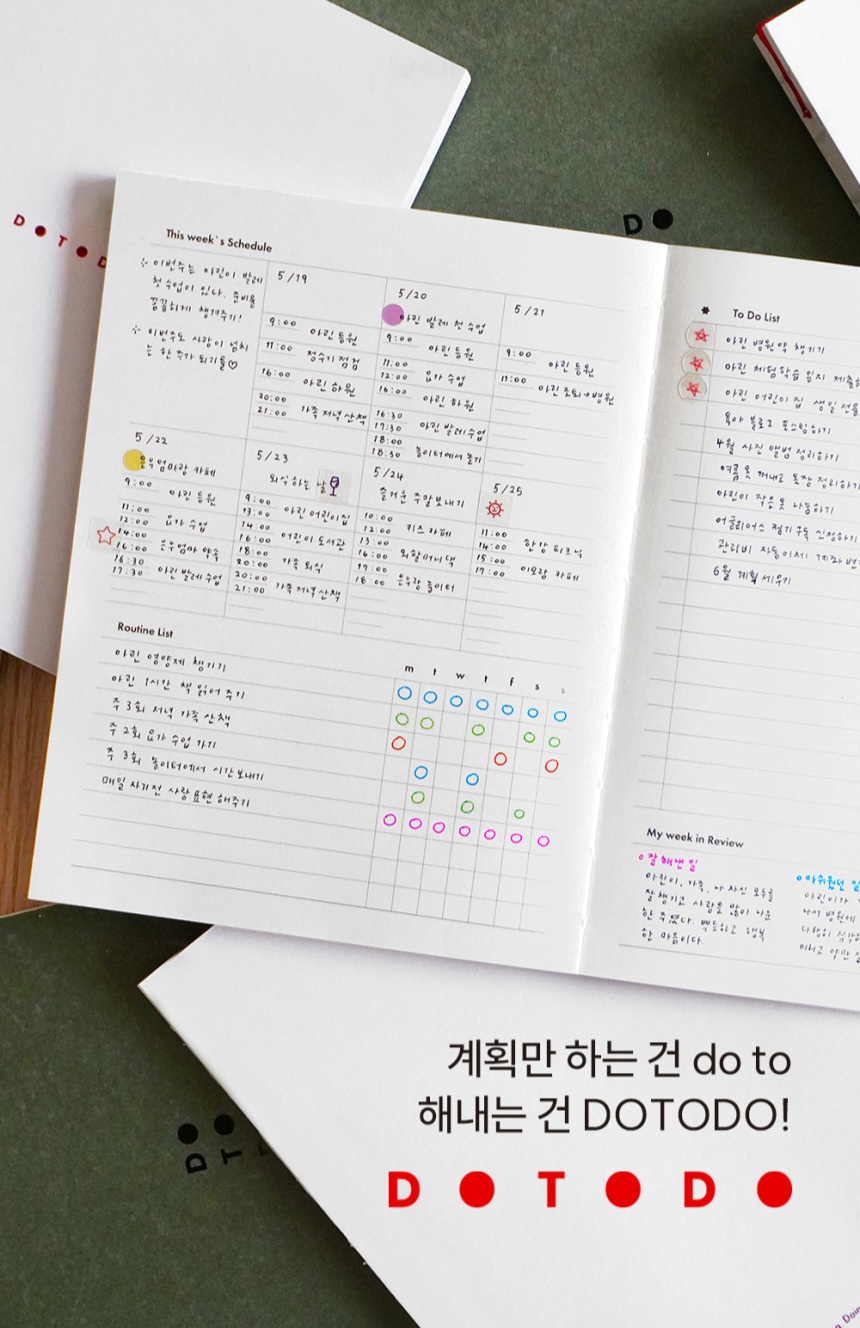 D ● T ● D
D ●
This week`s Schedule
이번주는 아린이 발레
첫 수업이 있다. 준비물
꼼꼼하게 챙겨주기!
이번주도 사랑이 넘치
는 한 주가 되기를♡
5/19
9:00 아린 등원
11:00 정수기 점검
16:00 아린 하원
20:00
21:00 가족 저녁 산책
5/20
아린 발레 첫 수업
9:00 아린 등원
11:00
12:00 요가 수업
16:00 아린 하원
16:30
17:30 아린 발레 수업
18:00
18:30 놀이터에서 놀기
5/21
9:00 아린 등원
11:00 아린 조퇴→병원
5/22
은우엄마랑 카페
9:00 아린 등원
11:00
12:00 요가 수업
14:00
16:00 은우엄마 약속
16:30
17:30 아린 발레 수업
5/23
외식 하는 날
9:00
13:00 아린 어린이집
14:00
16:00 어린이 도서관
18:00
20:00 가족 외식
20:00
21:00 가족 저녁 산책
5/24
즐거운 주말 보내기
10:00
12:00 키즈 카페
13:00
16:00 외할머니 댁
17:00
18:00 은우랑 놀이터
5/25
11:00
14:00 한강 피크닉
15:00
17:00 이모랑 카페
Routine List
m t w t f s s
아린 영양제 챙기기
아린 1시간 책 읽어 주기
주 3회 저녁 가족 산책
주 2회 요가 수업 가기
주 3회 놀이터에서 시간 보내기
매일 자기 전 사랑 표현 해주기
To Do List
아린 병원 약 챙기기
아린 체험학습 일지 제출하
아린 어린이집 생일 선물
육아 블로그 포스팅하기
4월 사진 앨범 정리하기
여름 옷 꺼내고 옷장 정리하기
아린이 작은 옷 나눔하기
어글리어스 정기구독 신청하기
관리비 자동이체 계좌 변
6월 계획 세우기
My week in Review
잘 해낸 일
아린이, 가족, 나 자신 모두를
잘 챙기고 사랑을 많이 나눈
한 주였다. 뿌듯하고 행복
한 마음이다.
아쉬웠던 일
아린이가
나서 병원에
계획만 하는 건 do to
해내는 건 DOTODO!
D ● T ● D ●
D ● T ●